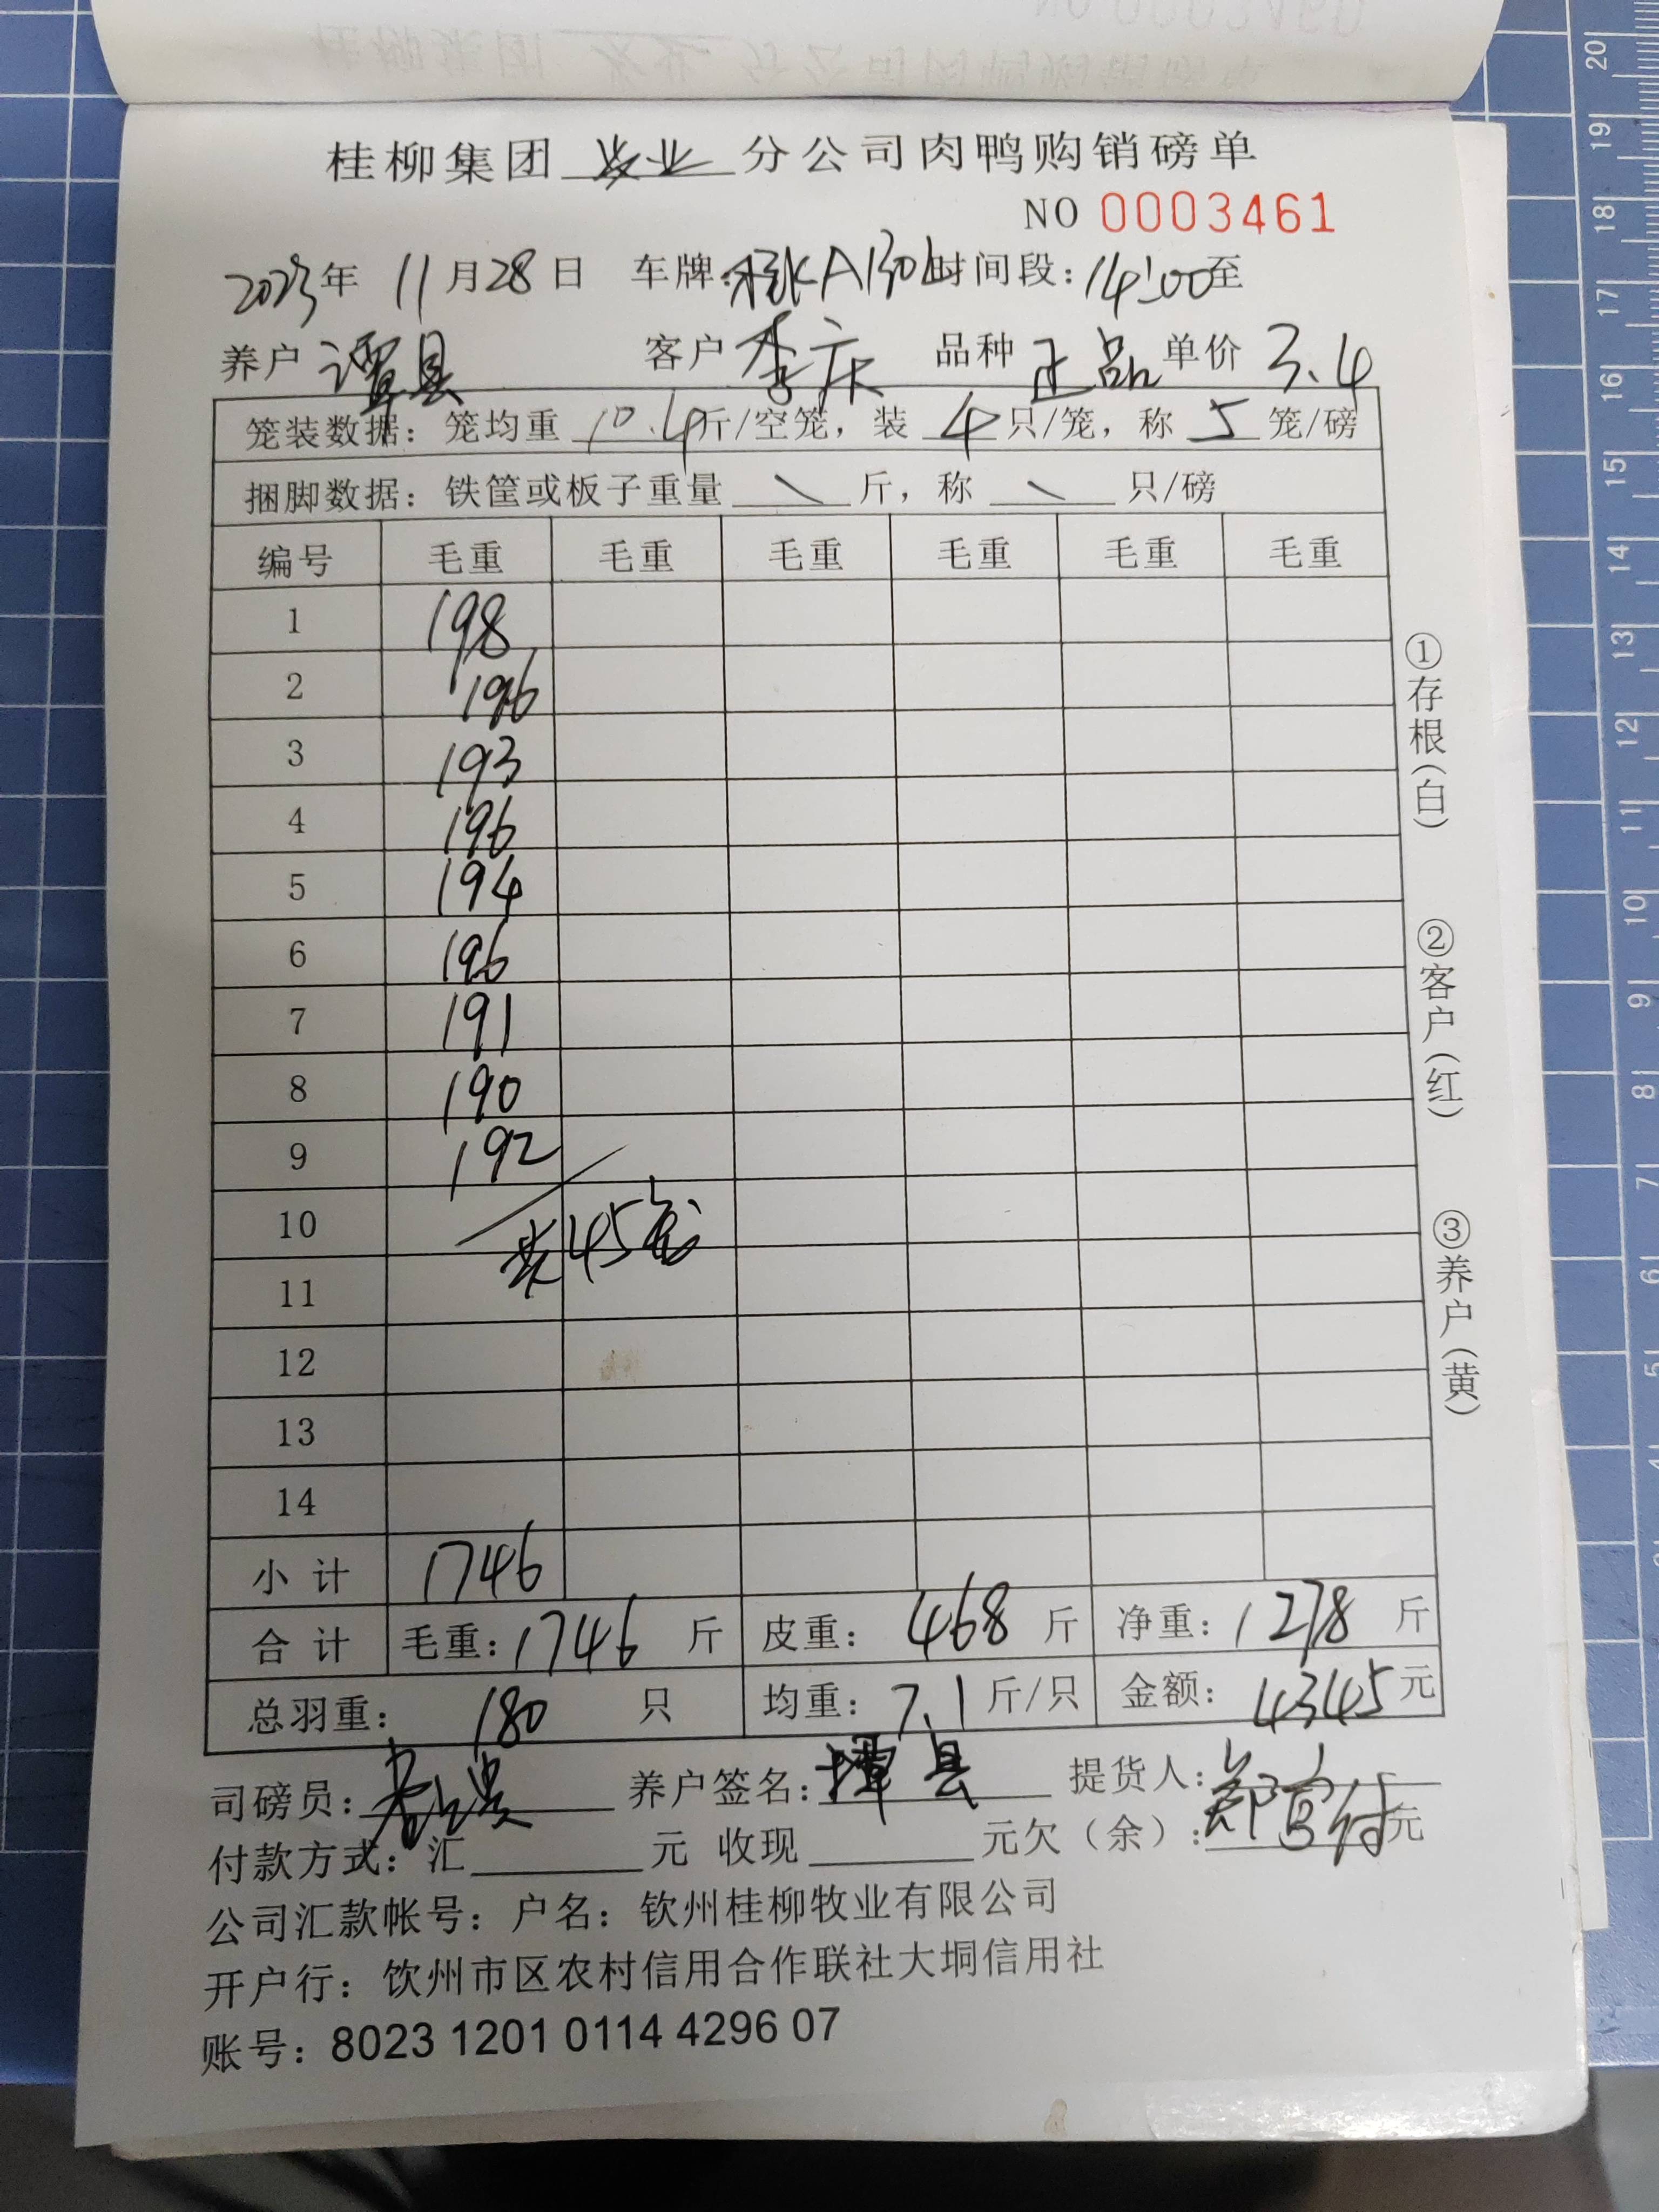 桂柳集团 分公司肉鸭购销磅单
NO 0003461
2023年 11月28日 车牌: 时间段:14:00至
养户 谭县 客户 李庆 品种 正品 单价 3.4
笼装数据:笼均重 10.4斤/空笼,装 4只/笼,称 5 笼/磅
捆脚数据:铁筐或板子重量 \ 斤,称 \ 只/磅
编号 毛重 毛重 毛重 毛重 毛重 毛重
1 198
2 196
3 193
4 196
5 194
6 196
7 191
8 190
9 192
10 共45笼
11
12
13
14
小计 1746
合计 毛重:1746 斤 皮重:468 斤 净重:1278 斤
总羽重:180 只 均重:7.1 斤/只 金额:4345元
司磅员: 养户签名: 提货人:
付款方式:汇 元 收现 元欠(余): 元
公司汇款帐号:户名:钦州桂柳牧业有限公司
开户行:饮州市区农村信用合作联社大垌信用社
账号:8023 1201 0114 4296 07
①存根(白)
②客户(红)
③养户(黄)
20
19
18
17
16
15
14
13
12
11
10
9
8
7
6
5
4